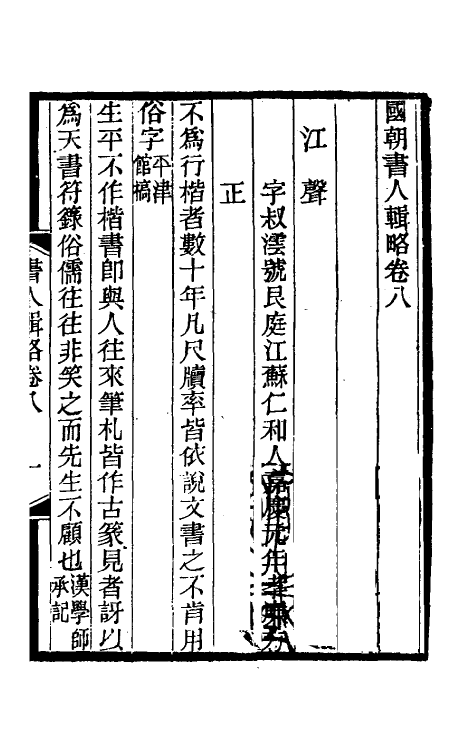 國朝書人輯略卷八
江聲
字叔澐號艮庭江蘇仁和人嘉慶元年孝廉方
正
不爲行楷者數十年凡尺牘率皆依說文書之不肯用
俗字平津館稿
生平不作楷書卽與人往來筆札皆作古篆見者訝以
爲天書符籙俗儒往往非笑之而先生不顧也漢學師承記
書人輯略卷八
一